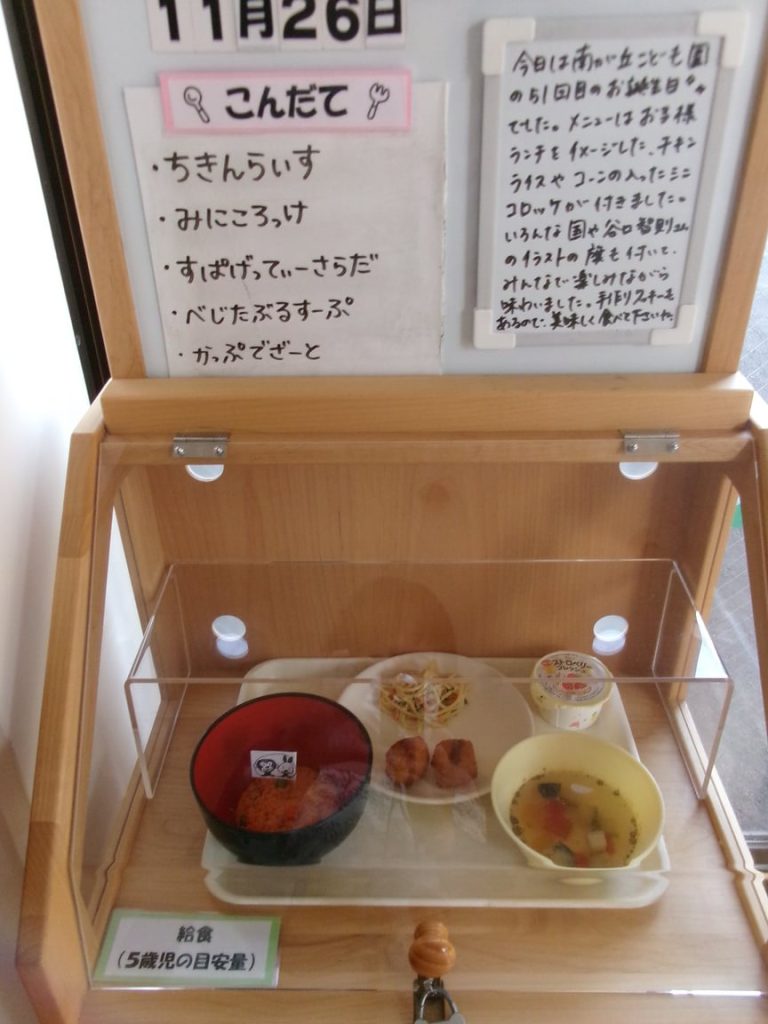 11月26日
こんだて
・ちきんらいす
・みにころっけ
・すぱげってぃーさらだ
・べじたぶるすーぷ
・かっぷでざーと
今日は南が丘こども園
の51回目のお誕生日
でした。メニューはお子様
ランチをイメージした、チキン
ライスや コーンの入ったミニ
コロッケが付きました。
いろんな国や谷口智則さん
のイラストの旗も付いて、
みんなで楽しみながら
味わいました。手作りクッキーも
あるので、美味しく食べて下さいね
ストロベリー
フレッシュ
給食
(5歳児の目安量)